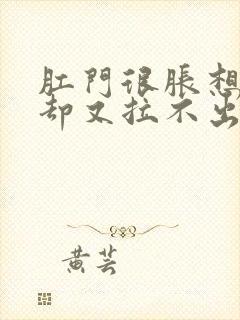 肛門很脹想
却又拉不出
黄芸